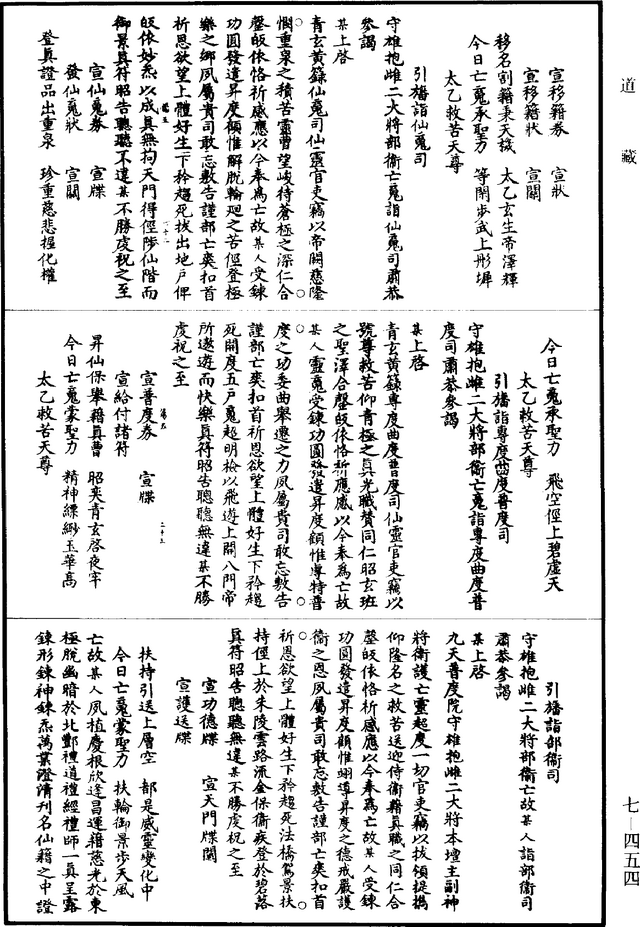 道藏
宣移籍券　宣狀
宣移籍狀　宣關
移名割籍秉天誥　太乙玄生帝澤輝
今日亡魂承聖力　等閑步武上彤墀
太乙救苦天尊
引旛詣仙魂司
守雄抱雌二大將部衞亡魂詣仙魂司肅恭
參謁
某上啓
青玄黃籙仙魂司仙靈官吏竊以帝闕慈隆
憫重泉之積苦靈曹望峻待蒼極之深仁合
罄皈依恪祈感應以今奉爲亡故某人受鍊
功圓發遣昇度願惟解脫輪廻之苦俓登極
樂之鄉夙屬貴司敢忘敷告謹部亡爽扣首
祈恩欲望上體好生下矜超死拔出地戶俾
皈依妙炁以成眞無拘天門得俓陟仙階而
御景眞符昭告聰聽不違某不勝虔祝之至
宣仙魂券　宣牒
發仙魂狀　宣關
登眞證品出重泉　珍重慈悲握化權
今日亡魂承聖力　飛空俓上碧虛天
太乙救苦天尊
引旛詣專度曲度普度司
守雄抱雌二大將部衞亡魂詣專度曲度普
度司肅恭參謁
某上啓
青玄黃籙專度曲度普度司仙靈官吏竊以
號尊救苦仰青極之眞光職贊同仁昭玄班
之聖澤合罄皈依恪祈應感以今奉爲亡故
某人靈魂受鍊功圓發遣昇度願惟專特普
度之功委曲舉遷之力夙屬貴司敢忘敷告
謹部亡爽扣首祈恩欲望上體好生下矜超
死開度五戶魂超明檢以飛遊上闢八門帝
所遨遊而快樂眞符昭告聰聽無違某不勝
虔祝之至
宣普度券　宣牒
宣給付諸符
昇仙保舉籍眞曹　昭爽青玄啓夜牢
今日亡魂蒙聖力　精神縹緲玉華高
太乙救苦天尊
引旛詣部衞司
守雄抱雌二大將部衞亡故某人詣部衞司
肅恭參謁
某上啓
九天普度院守雄抱雌二大將本壇主副神
將衞護亡靈起度一切官吏竊以拔領提攜
仰隆名之救苦送迎侍衞籍眞職之同仁合
罄皈依恪祈感應以今奉爲亡故某人受鍊
功圓發遣昇度願惟翊導昇度之德戒嚴護
衞之恩夙屬貴司敢忘敷告謹部亡爽扣首
祈恩欲望上體好生下矜超死法橋駕景扶
持俓上於朱陵雲路流金保衞疾登於碧落
眞符昭告聰聽無違某不勝虔祝之至
宣功德牒　宣天門牒關
宣護送牒
扶持引送上層空　都是威靈變化中
今日亡魂蒙聖力　扶輪御景步天風
亡故某人夙植慶根欣逢昌運籍慈光於東
極脫幽暗於北酆禮道禮經禮師一眞呈露
鍊形鍊神鍊炁萬葉澄清刊名仙籍之中證
七—四五四